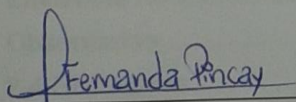 Fernanda Pincay